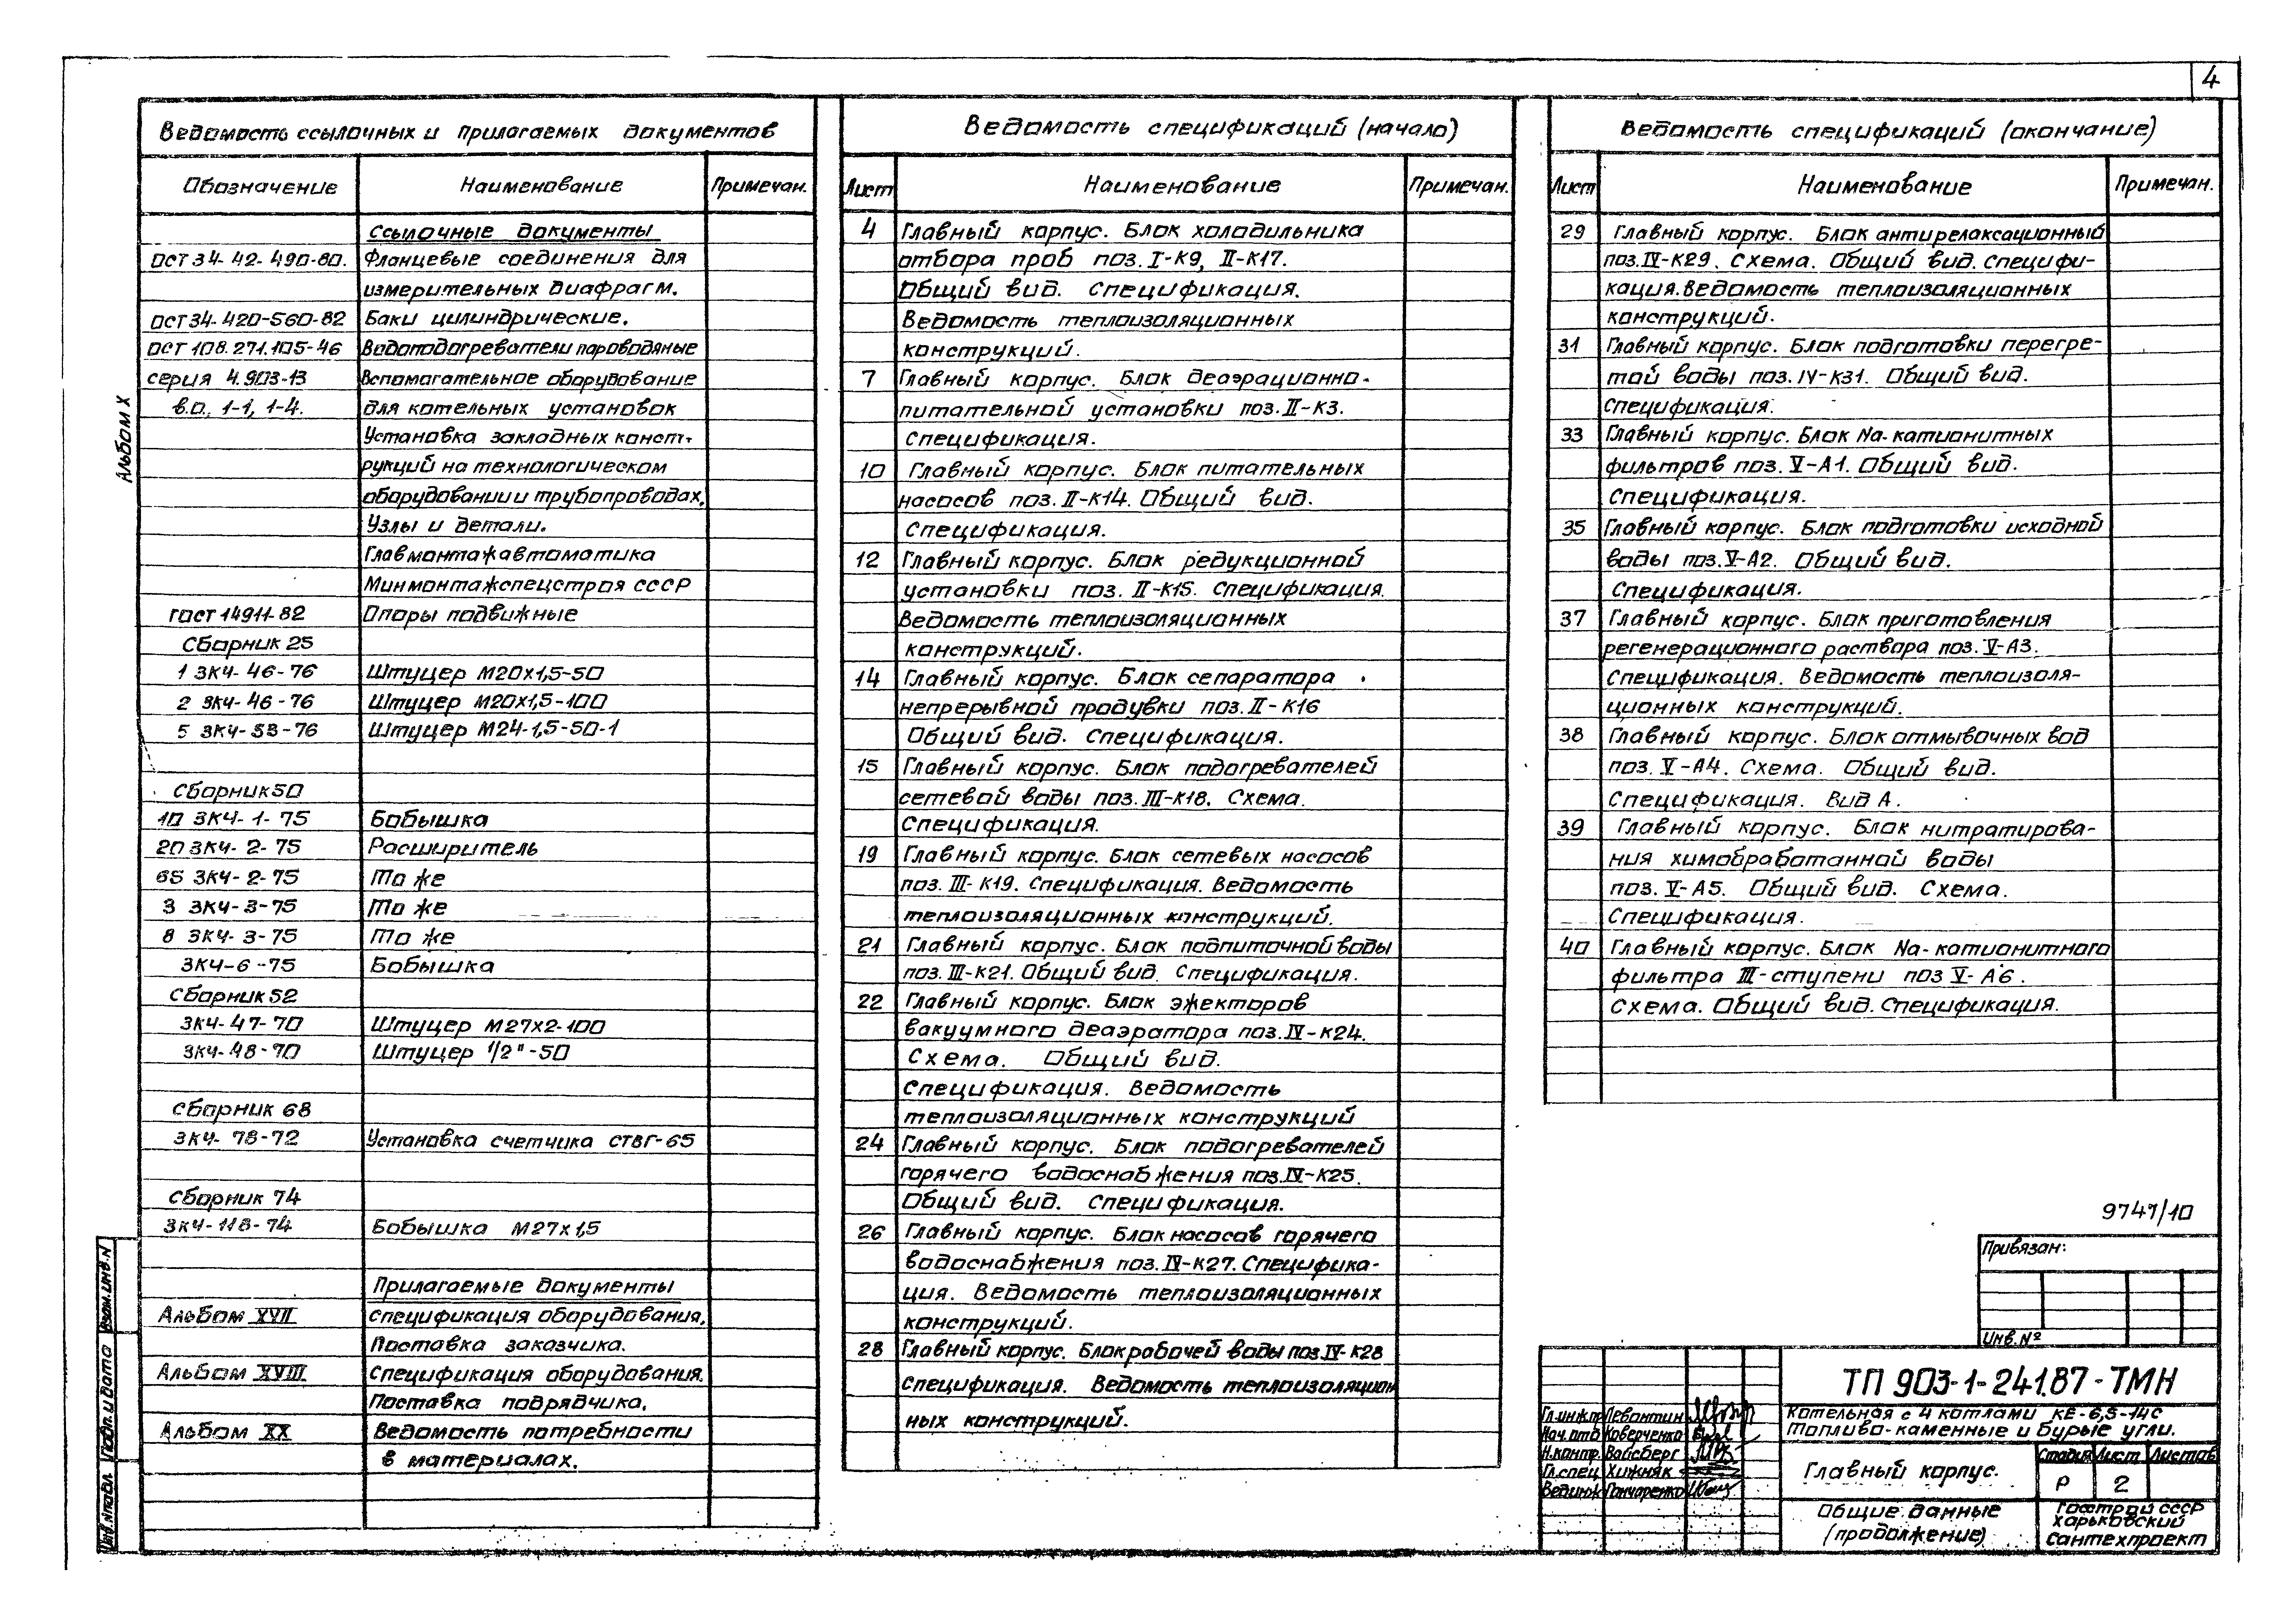 4
Альбом X
Ведомость ссылочных и прилагаемых документов
Обозначение Наименование Примечан.
Ссылочные документы
ОСТ 34-42-490-80. Фланцевые соединения для
измерительных диафрагм.
ОСТ 34-420-560-82 Баки цилиндрические.
ОСТ 108.271.105-46 Водоподогреватели пароводяные
серия 4.903-13 Вспомогательное оборудование
в.0, 1-1, 1-4. для котельных установок
Установка закладных конст-
рукций на технологическом
оборудовании и трубопроводах.
Узлы и детали.
Главмонтажавтоматика
Минмонтажспецстроя СССР
ГОСТ 14911-82 Опоры подвижные
Сборник 25
1 ЗКЧ-46-76 Штуцер М20х1,5-50
2 ЗКЧ-46-76 Штуцер М20х1,5-100
5 ЗКЧ-53-76 Штуцер М24-1,5-50-1
Сборник 50
10 ЗКЧ-1-75 Бобышка
20 ЗКЧ-2-75 Расширитель
65 ЗКЧ-2-75 То же
3 ЗКЧ-3-75 То же
8 ЗКЧ-3-75 То же
ЗКЧ-6-75 Бобышка
Сборник 52
ЗКЧ-47-70 Штуцер М27х2-100
ЗКЧ-48-70 Штуцер 1/2"-50
Сборник 68
ЗКЧ-78-72 Установка счетчика СТВГ-65
Сборник 74
ЗКЧ-118-74 Бобышка М27х1,5
Прилагаемые документы
Альбом XVII Спецификация оборудования.
Поставка заказчика.
Альбом XVIII Спецификация оборудования.
Поставка подрядчика.
Альбом XX Ведомость потребности
в материалах.
Ведомость спецификаций (начало)
Лист Наименование Примечан.
4 Главный корпус. Блок холодильника
отбора проб поз. I-К9, II-К17.
Общий вид. Спецификация.
Ведомость теплоизоляционных
конструкций.
7 Главный корпус. Блок деаэрационно-
питательной установки поз. II-К3.
Спецификация.
10 Главный корпус. Блок питательных
насосов поз. II-К14. Общий вид.
Спецификация.
12 Главный корпус. Блок редукционной
установки поз. II-К15. Спецификация.
Ведомость теплоизоляционных
конструкций.
14 Главный корпус. Блок сепаратора
непрерывной продувки поз. II-К16
Общий вид. Спецификация.
15 Главный корпус. Блок подогревателей
сетевой воды поз. III-К18. Схема.
Спецификация.
19 Главный корпус. Блок сетевых насосов
поз. III-К19. Спецификация. Ведомость
теплоизоляционных конструкций.
21 Главный корпус. Блок подпиточной воды
поз. III-К21. Общий вид. Спецификация.
22 Главный корпус. Блок эжекторов
вакуумного деаэратора поз. IV-К24.
Схема. Общий вид.
Спецификация. Ведомость
теплоизоляционных конструкций
24 Главный корпус. Блок подогревателей
горячего водоснабжения поз. IV-К25.
Общий вид. Спецификация.
26 Главный корпус. Блок насосов горячего
водоснабжения поз. IV-К27. Специфика-
ция. Ведомость теплоизоляционных
конструкций.
28 Главный корпус. Блок рабочей воды поз. IV-К28
Спецификация. Ведомость теплоизоляцион
ных конструкций.
Ведомость спецификаций (окончание)
Лист Наименование Примечан.
29 Главный корпус. Блок антирелаксационный
поз. IV-К29. Схема. Общий вид. Специфи-
кация. Ведомость теплоизоляционных
конструкций.
31 Главный корпус. Блок подготовки перегре-
той воды поз. IV-К31. Общий вид.
Спецификация.
33 Главный корпус. Блок Na-катионитных
фильтров поз. V-А1. Общий вид.
Спецификация.
35 Главный корпус. Блок подготовки исходной
воды поз. V-А2. Общий вид.
Спецификация.
37 Главный корпус. Блок приготовления
регенерационного раствора поз. V-А3.
Спецификация. Ведомость теплоизоля-
ционных конструкций.
38 Главный корпус. Блок отмывочных вод
поз. V-А4. Схема. Общий вид.
Спецификация. Вид А.
39 Главный корпус. Блок нитратирова-
ния химобработанной воды
поз. V-А5. Общий вид. Схема.
Спецификация.
40 Главный корпус. Блок Na-катионитного
фильтра III-ступени поз V-А6.
Схема. Общий вид. Спецификация.
9747/10
Привязан:
Инв. №
ТП 903-1-241.87-ТМН
Котельная с 4 котлами КЕ-6,5-14С
Топливо-каменные и бурые угли.
Гл.инж.пр Левантин
Нач.отд Коверченко
Н.контр. Вайсберг
Гл.спец Хижняк
Вед.инж Гончаренко
Главный корпус.
Стадия Лист Листов
Р 2
Общие данные
(продолжение)
Госстрой СССР
Харьковский
Сантехпроект
Взам.инв.N
Подп. и дата
Инв.N подл